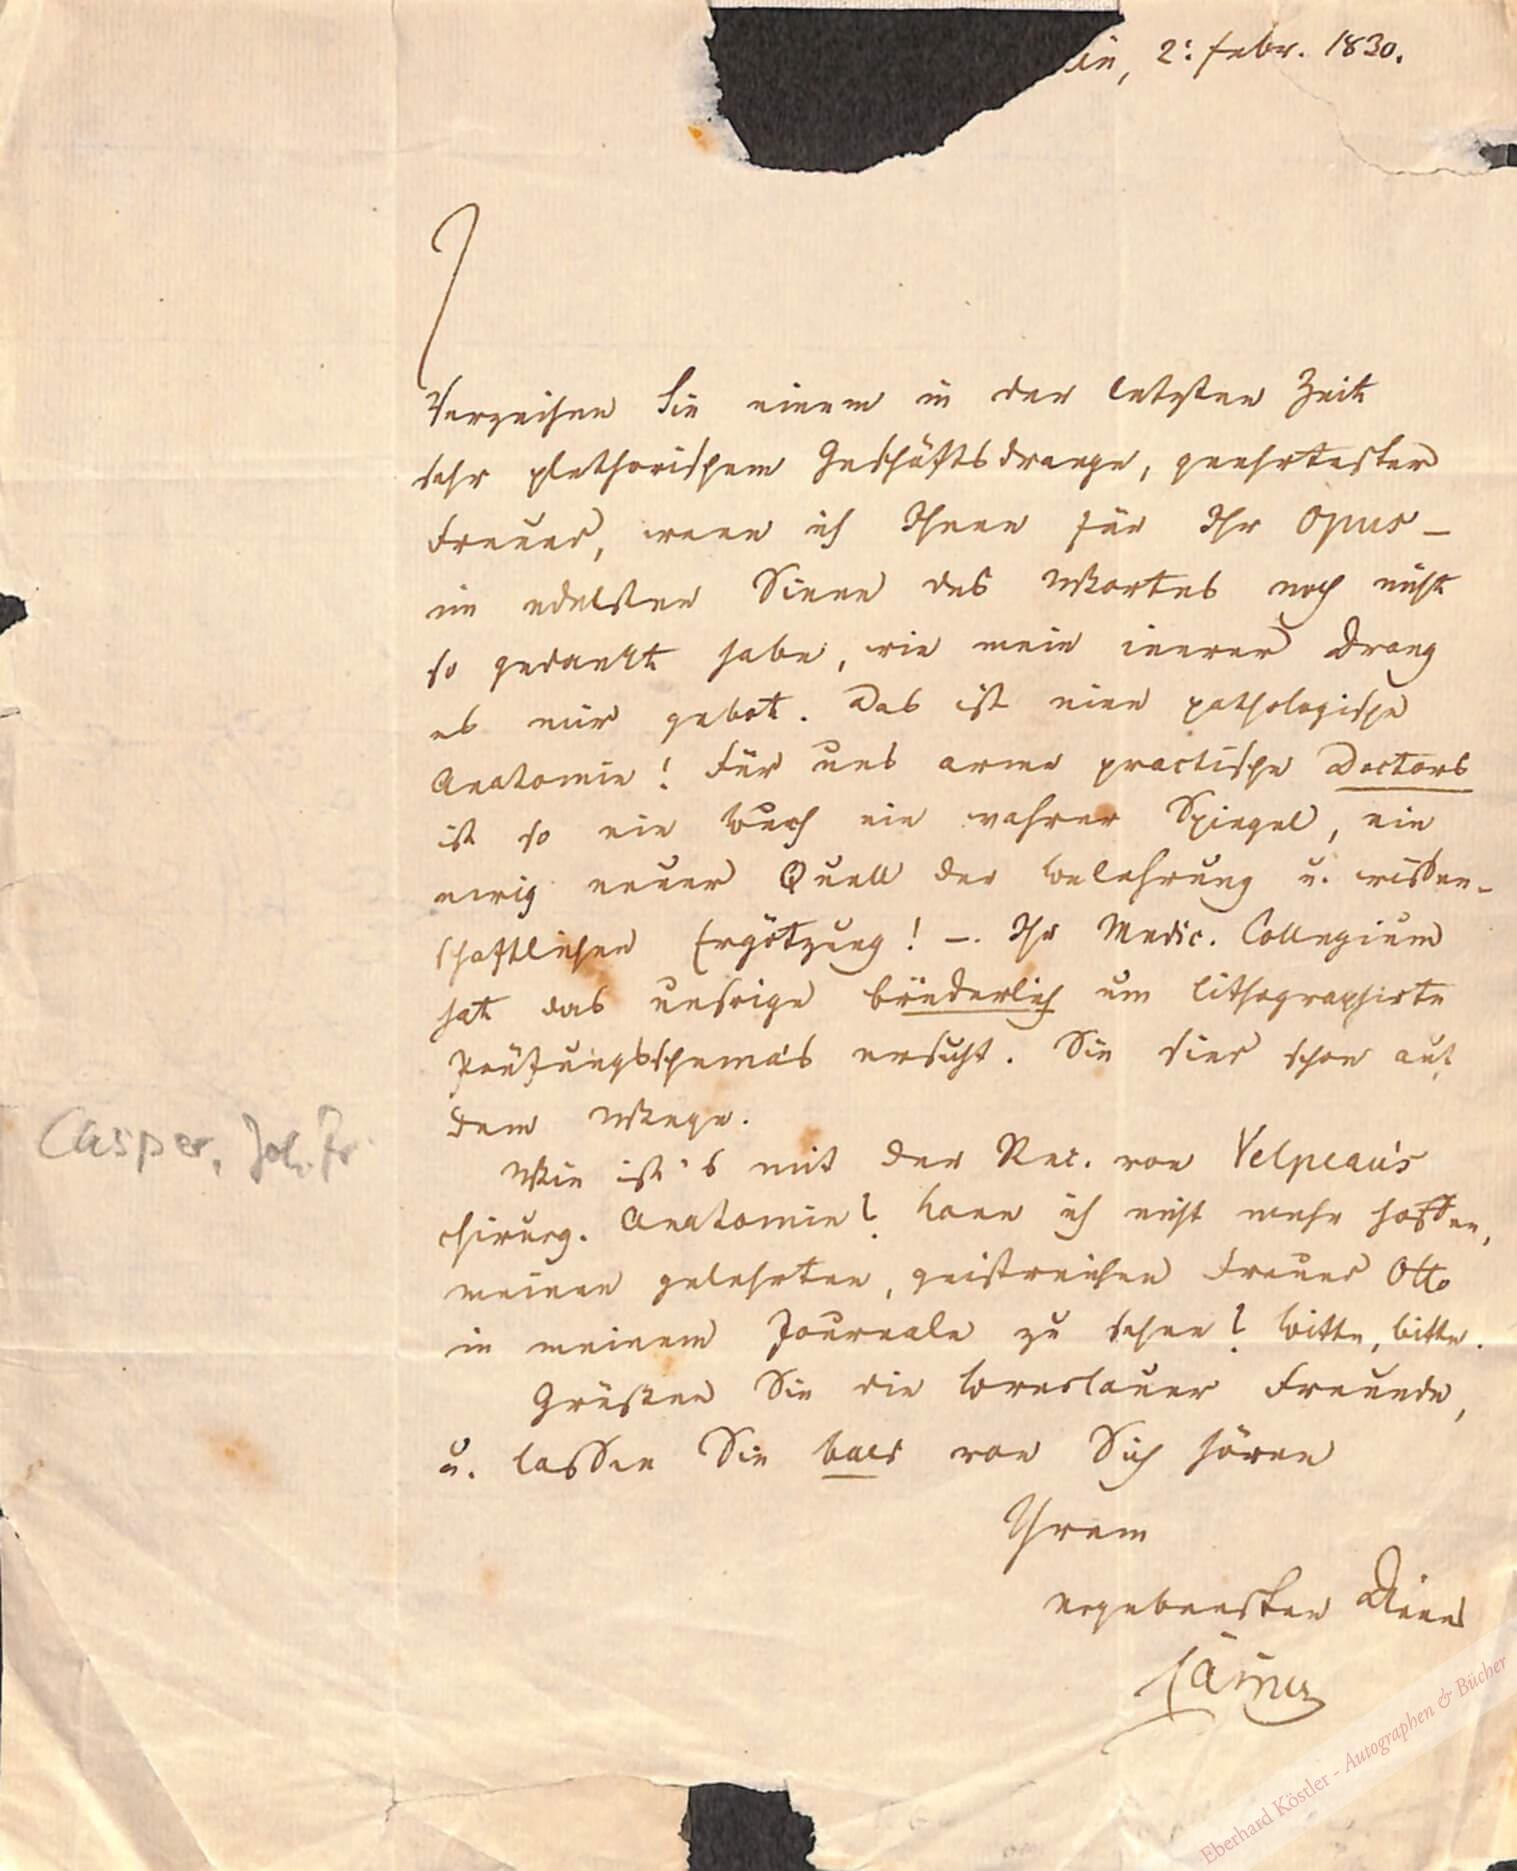 in, 2: Febr. 1830.
Verzeihen Sie einem in der letzten Zeit
sehr plethorischem Geschäftsdrange, geehrtester
Freund, wenn ich Ihnen für Ihr Opus –
im edelsten Sinne des Wortes noch nicht
so gedankt habe, wie mein innerer Drang
es mir gebot. Das ist eine pathologische
Anatomie! Für uns arme practische Doctors
ist so ein Buch ein wahrer Spiegel, ein
ewig neuer Quell der Belehrung u. wissen-
schaftlichen Ergötzung! –. Ihr Medic. Collegium
hat das unsrige brüderlich um lithographirte
Prüfungsschema's ersucht. Sie sind schon auf
dem Wege.
Casper, Joh. Fr.
Wie ist's mit der Rec. von Velpeau's
chirurg. Anatomie? Kann ich nicht mehr hoffen,
meinen gelehrten, geistreichen Freund Otto
in meinem Journale zu sehen? Bitte, bitte.
Grüßen Sie die Breslauer Freunde,
u. lassen Sie bald von Sich hören
Ihrem
ergebensten Diener
Casper
Eberhard Köstler - Autographen & Bücher